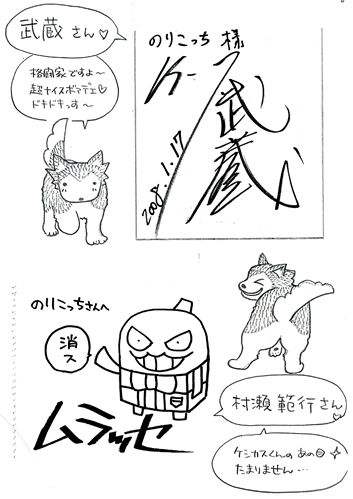 武蔵さん♡
格闘家ですよ～
超ナイスボマデェ♡
ドキドキっす～
のりこっち 様
K-1
武蔵
2008.1.17
のりこっちさんへ
消ス
ムラッセ
村瀬 範行さん♡
ケシカスくんのあの目✧
たまりません…